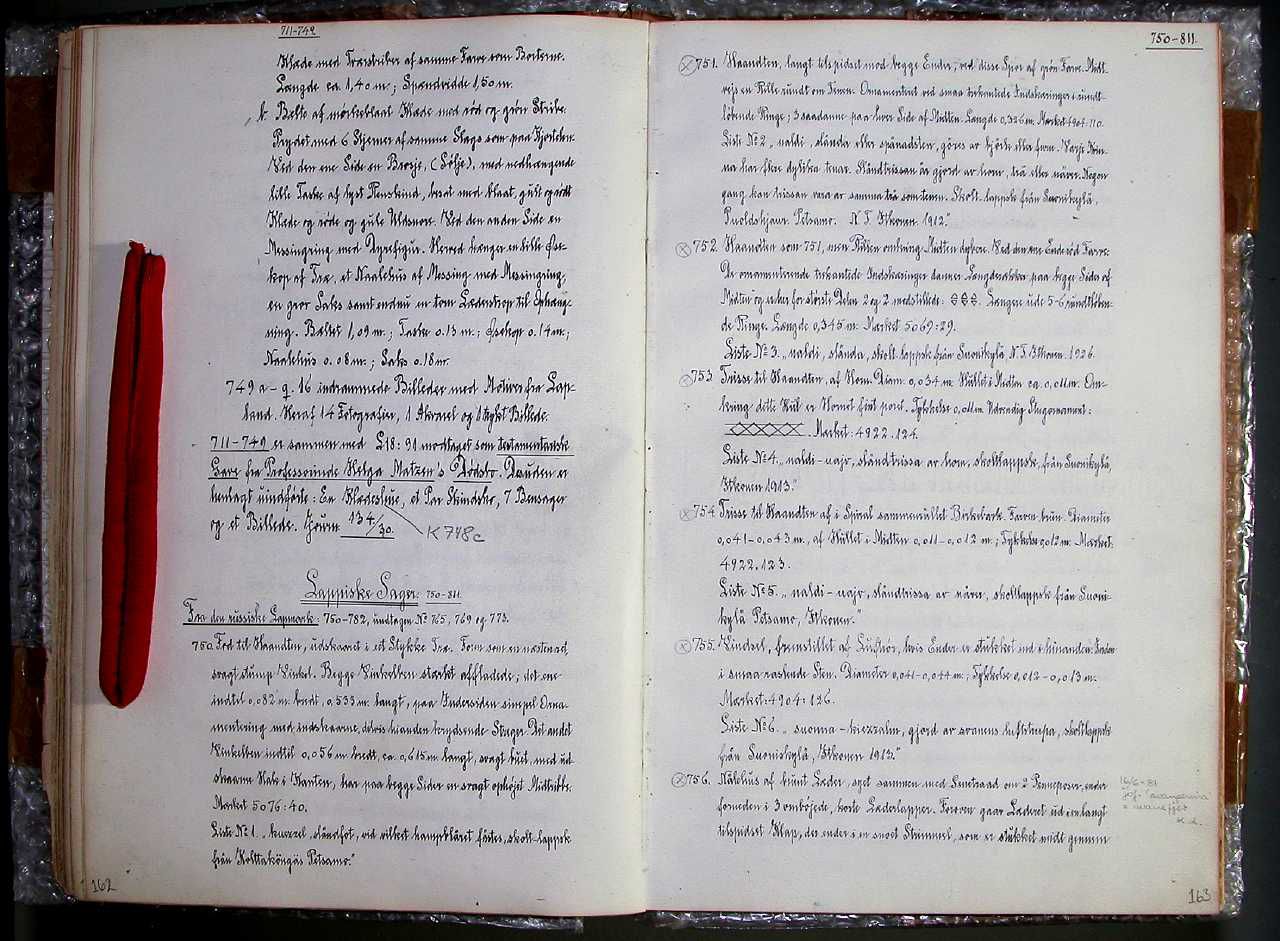 711-749
Klæde med Tværstriber af samme Farve som Borterne.
Længde ca 1,40 m; Spændvidde 1,50 m.
b. Bælte af mørkeblaat Klæde med rød og grøn Stribe.
Prydet med 6 Stjerner af samme Slags som paa Kjortelen.
Ved den ene Side en Brosje, (Sölje), med nedhængende
lille Taske af lyst Renskind, besat med blaat, gult og rødt
Klæde og røde og gule Uldsnore. Ved den anden Side en
Messingring med Dyrefigur. Herved hænger en lille Øse-
kop af Træ, et Naalehus af Messing med Messingring,
en grov Saks samt endnu en tom Læderstrop til Ophæng-
ning. Bæltet 1,09 m.; Taske 0.13 m.; Øsekop 0.14 m.;
Naalehus 0.08 m.; Saks 0.18 m.
749 a - q. 16 indrammede Billeder med Motiver fra Lap-
land. Heraf 14 Fotografier, 1 Akvarel og 1 trykt Billede.
711-749 er sammen med L18: 91 modtaget som testamentarisk
Gave fra Professorinde Helga Matzen's Dødsbo. Desuden er
henlagt uindførte: En Klædeshue, et Par Skindsko, 7 Bensager
og et Billede. Journ 134/30. K 748c
Lappiske Sager: 750-811.
Fra den russiske Lapmark: 750-782, undtagen № 765, 769 og 773.
750. Fod til Haandten, udskaaret i et Stykke Træ. Form som en næsten ret
svagt stump Vinkel. Begge Vinkelben stærkt affladede; det ene
indtil 0,082 m bredt, 0,533 m. langt, paa Indersiden simpel Orna-
mentering med indskaarne, delvis hinanden krydsende Streger. Det andet
Vinkelben indtil 0,056 m bredt, ca 0,615 m langt, svagt buet, med ud-
skaarne Hak i Kanten, har paa begge Sider en svagt ophøjet Midtribbe.
Mærket 5076:40.
Liste № 1. „kuerzel, sländfot, vid vilket hampblånet fästes, skolt-lappsk
från Kolttaköngäs Petsamo."
162
750-811.
751. Haandten, langt tilspidset mod begge Ender; ved disse Spor af grøn Farve. Midt-
vejs en Rille rundt om Tenen. Ornamenteret ved smaa trekantede Indskæringer i rundt-
løbende Ringe; 3 saadanne paa hver Side af Midten. Længde 0,326 m. Mærket 4904:110.
Liste № 2 „naldi, slända eller spånadsten, göres av björk eller furu. Varje kvin-
na har flere dylika tenar. Sländtrissan är gjord av horn, trä eller näver. Någon
gang kan trissan vara av samma trä som tenen. Skolt-lappsk från Suonikylä,
Puoldshjaur. Petsamo. N. T. Itkonen. 1912."
752. Haandten som 751, men Rillen omkring Midten dybere. Ved den ene Ende rød Farve.
De ornamenterende trekantede Indskæringer danner Længderækker paa begge Sider af
Midten og er her for største Delen 2 og 2 modstillede: ◊◊◊. Længere ude 5-6 rundtløben-
de Ringe. Længde 0,345 m. Mærket 5069:29.
Liste № 3. „naldi, slända, skolt-lappsk från Suonikylä N.T. Itkonen. 1926.
753. Trisse til Haandten, af Horn. Diam. 0,034 m. Hullet i Midten ca. 0,011 m. Om-
kring dette Hul er Hornet fint porøst. Tykkelse 0,011 m. Udvendig Stregornament:
XXXXXX. Mærket: 4922.124.
Liste № 4. „naldi-najv, sländtrissa av horn, skoltlappsk, från Suonikylä,
Itkonen 1913."
754. Trisse til Haandten af i Spiral sammenrullet Birkebark. Farven brun. Diameter
0,041-0,043 m., af Hullet i Midten 0,011-0,012 m.; Tykkelse 0,012 m. Mærket:
4922.123.
Liste № 5. „naldi-najv, sländtrissa av näver, skoltlappsk från Suoni-
kylä Petsamo, Itkonen."
755. Vindsel, fremstillet af Luftrør, hvis Ender er stukket ind i hinanden. Inden
i smaa raslende Sten. Diameter 0,041-0,044 m.; Tykkelse 0,012-0,013 m.
Mærket: 4904:126.
Liste № 6. „suonna-kiezzalm, gjord av svanens luftstrupe, skoltlappsk
från Suoniskylä, Itkonen 1913."
756. Nålehus af brunt Læder, syet sammen med Senetraad om 2 Penneposer, ender
forneden i 3 ombøjede, korte Læderlapper. Foroven gaar Læderet ud i en langt
tilspidset Klap, der ender i en snoet Strimmel, som er stukket midt gennem
16/6-81
163